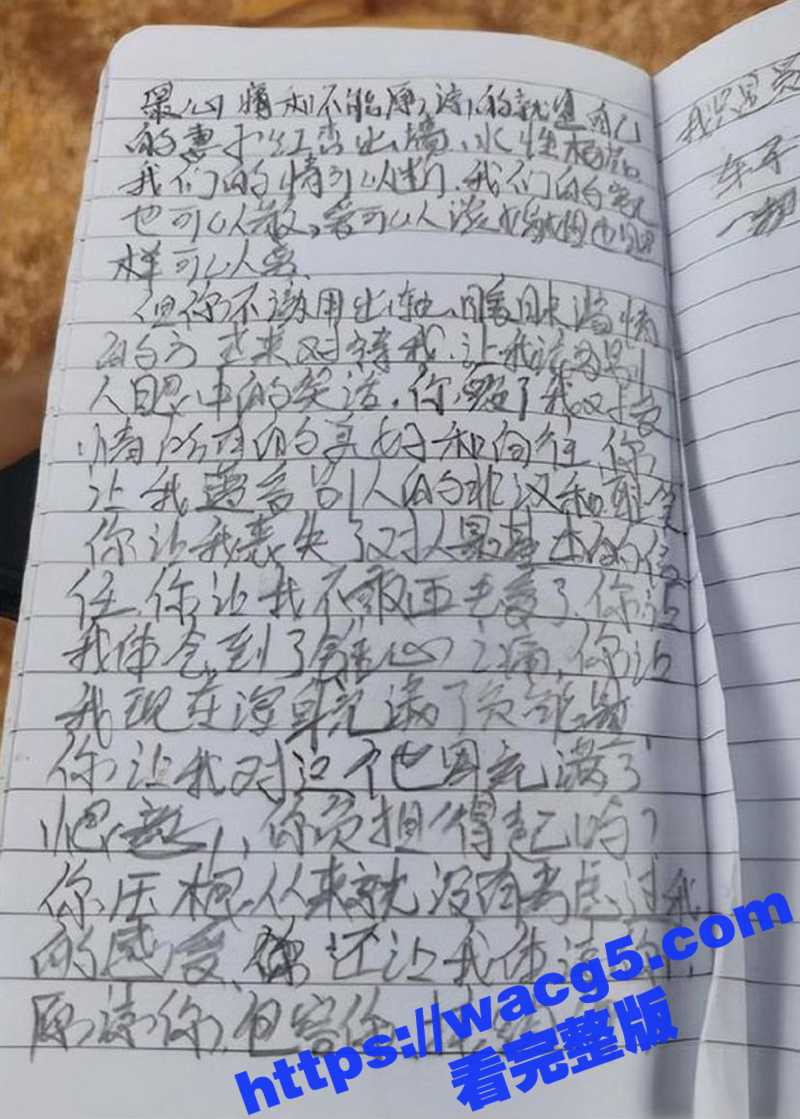 最心痛和不能原谅的就是自己
的妻子红杏出墙、水性杨花
我们的情可以断.我们的家
也可以散,爱可以淡
样可以
但你不该用出轨、暧昧、滥情
的方式来对待我.让我活为别
人眼中的笑话.你毁了我对
情所有的真好和向往.你
让我遭否别人的非议和
你让我丧失了对人最基本的信
任.你让我不敢再去爱了.你让
我体会到了锥心之痛.你让
我现在浑身充满了负能量
你让我对这个世界充满了
你负担得起吗?
你压根从来就没有考虑过我
的感受、你还让我体谅你,
原谅你、包容你
我只是
https://wacg5.com
看完整版